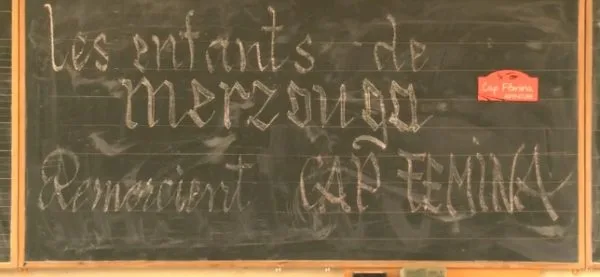 Les enfants de
merzouga
Remercient CAP FEMINA
Cap Fémina